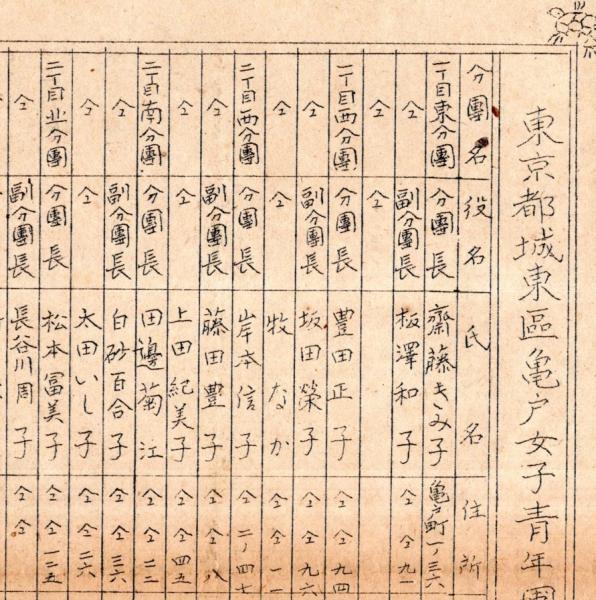 東京都城東區亀戸女子青年團
分團名 役名 氏名 住所
一丁目東分團 分團長 齋藤きみ子 亀戸町一ノ三六
仝 副分團長 板澤和子 仝 仝 九一
仝 仝
一丁目西分團 分團長 豊田正子 仝 仝 九四
仝 副分團長 坂田榮子 仝 仝 九六
仝 仝 牧なか 仝 仝 一一
二丁目西分團 分團長 岸本信子 仝 二ノ四七
仝 副分團長 藤田豊子 仝 仝 八
仝 仝 上田紀美子 仝 仝 四五
二丁目南分團 分團長 田邊菊江 仝 仝 二二
仝 副分團長 白砂百合子 仝 仝 三六
仝 仝 太田いし子 仝 仝 二六
二丁目北分團 分團長 松本冨美子 仝 仝 一二五
仝 副分團長 長谷川周子 仝 仝